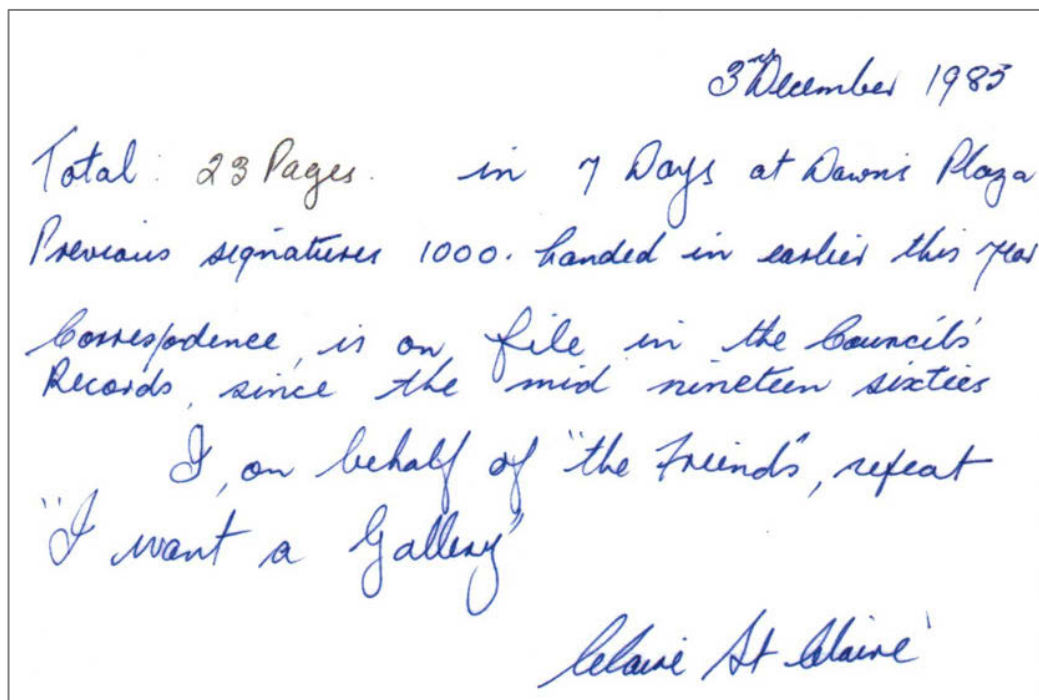 3rd December 1985
Total: 23 Pages. in 7 Days at Downs Plaza
Previous signatures 1000. handed in earlier this year
Correspodence, is on file in the Council's
Records, since the mid nineteen sixties
I, on behalf of "the Friends", repeat
"I want a Gallery"
Claire St Claire